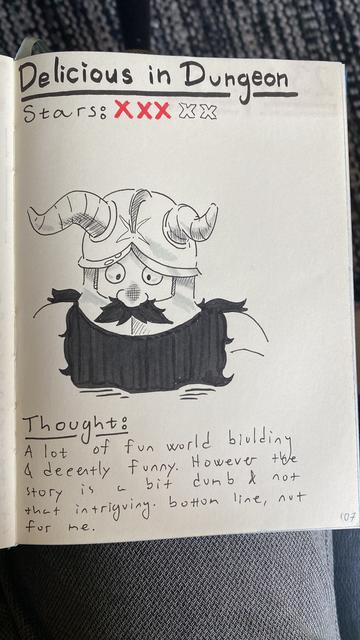 Delicious in Dungeon
Stars: XXX XX
Thought:
A lot of fun world biulding
& decently funny. However the
story is a bit dumb & not
that intriguing. bottom line, not
for me.
107